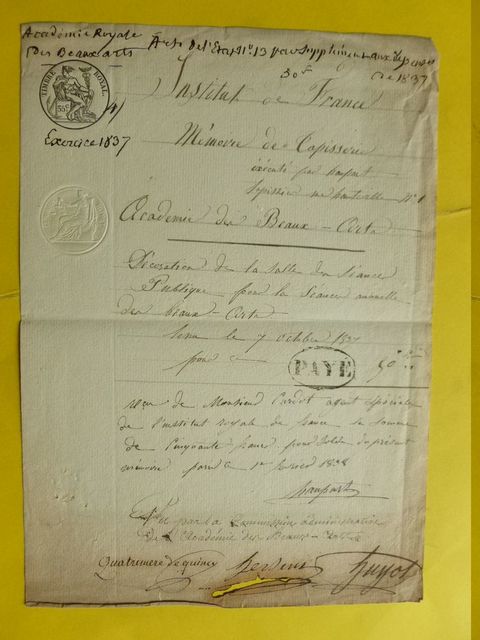 Académie Royale
Des Beaux arts
TIMBRE ROYAL
35c
Exercice 1837
de 1837
50 f
Institut de France
Mémoire de Tapisserie
exécuté par
tapissier N° 1
Académie des Beaux-Arts
Décoration de la Salle des Séances
Publique pour la Séance annuelle
des beaux-arts
le 7 octobre 1837
pour ce
PAYÉ
50
reçu de Monsieur Cardot agent spéciale
de l'institut royale de france la somme
de Cinquante francs pour Solde du présent
mémoire paris ce 1er février 1838
par la Commission administrative
de l'Académie des Beaux-Arts
Quatremere de quincy
Huyot